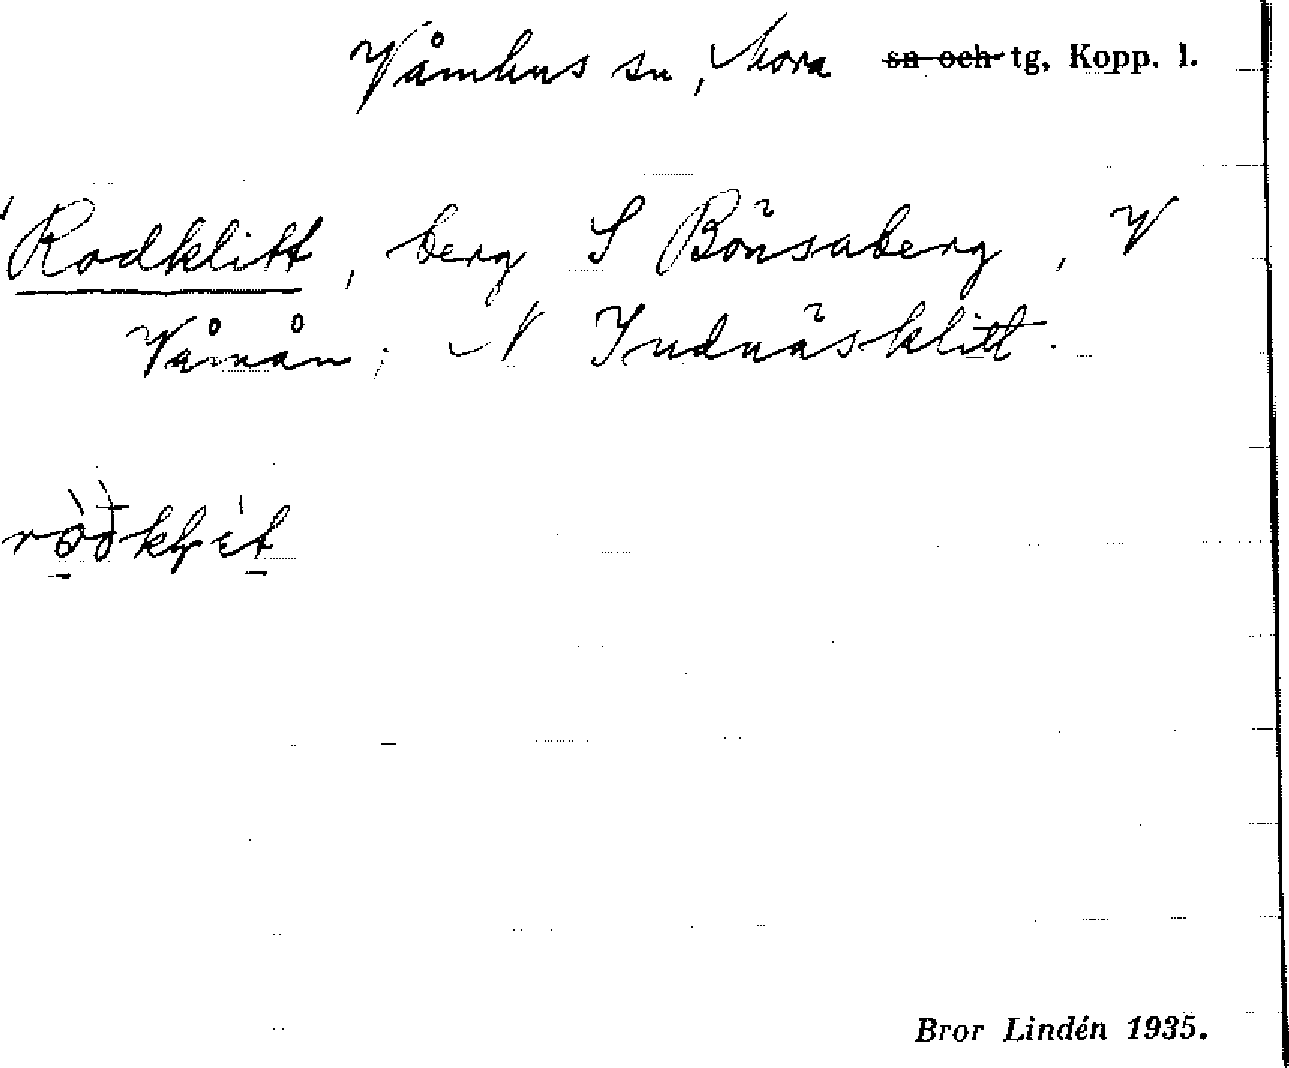 Våmhus sn, Mora sn och tg, Kopp. l.
Rodklitt, berg S Bönsaberg, V
Våmån, N Indnäsklitt.
Bror Lindén 1935.